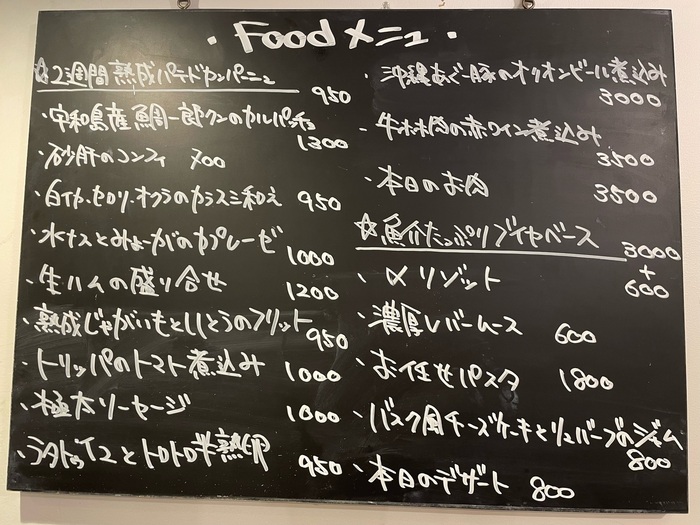 ・Foodメニュー・
☆2週間熟成パテドカンパーニュ 950
・宇和島産鯛一郎クンのカルパッチョ 1300
・砂肝のコンフィ 700
・白イカ、セロリ、オクラのカラスミ和え 950
・水ナスとみょーがのカプレーゼ 1000
・生ハムの盛り合せ 1200
・熟成じゃがいもとししとうのフリット 950
・トリッパのトマト煮込み 1000
・極太ソーセージ 1000
・ラタトゥイユとトロトロ半熟卵 950
・沖縄あぐー豚のオリオンビール煮込み 3000
・牛ホホ肉の赤ワイン煮込み 3500
・本日のお肉 3500
☆魚介たっぷりブイヤベース 3000
・〆リゾット +600
・濃厚レバームース 600
・お任せパスタ 1800
・バスク風チーズケーキとリュバーブのジャム 800
・本日のデザート 800